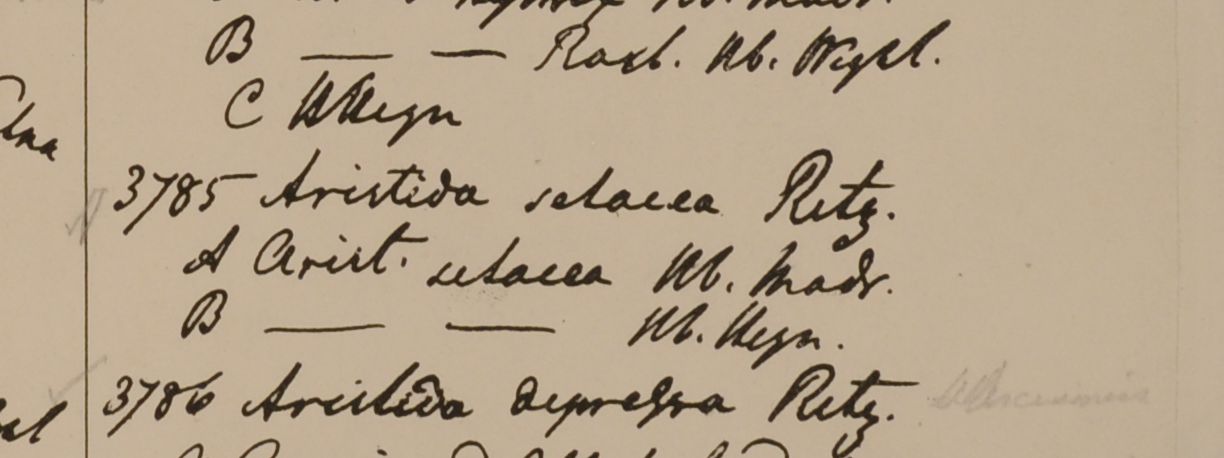 Hb. Madr.
B — — Roxb. Hb. Wight.
C Hb Heyn
3785 Aristida setacea Retz.
A Arist. setacea Hb. Madr.
B — — Hb. Heyn.
3786 Aristida depressa Retz.